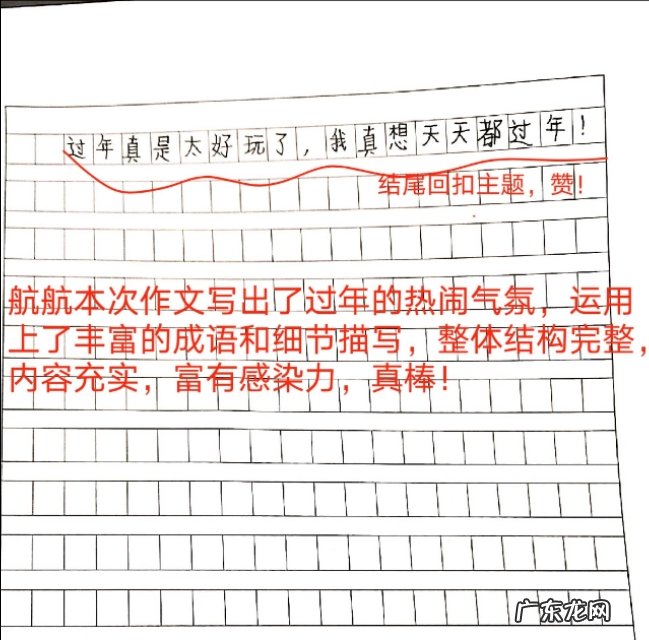 过年真是太好玩了，我真想天天都过年！
结尾回扣主题，赞！
航航本次作文写出了过年的热闹气氛，运用
上了丰富的成语和细节描写，整体结构完整，
内容充实，富有感染力，真棒！
广东龙网